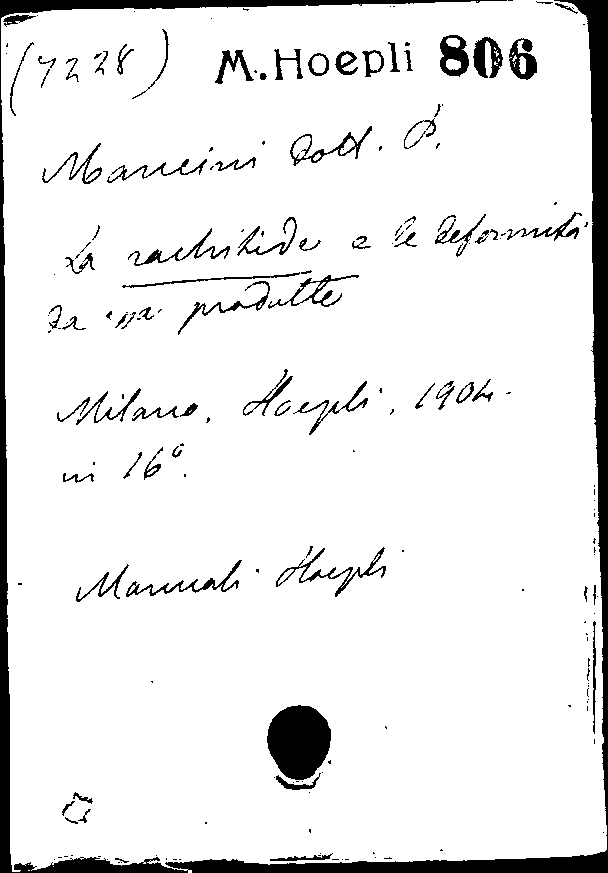 (7228) M.Hoepli 806
Mancini Dott. P.
La rachitide e le deformità
da essa prodotte
Milano, Hoepli, 1904.
in 16°.
Manuali Hoepli